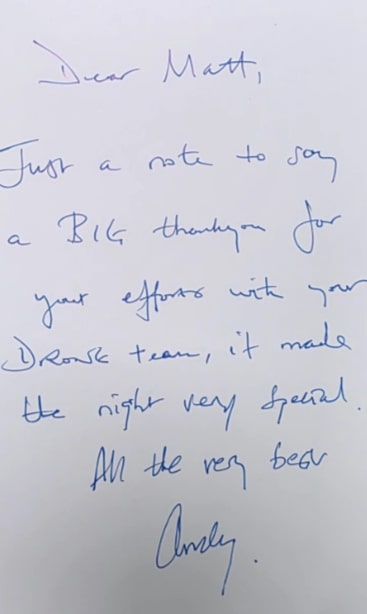 Dear Matt,
Just a note to say
a BIG thankyou for
your efforts with your
DRONE team, it made
the night very special.
All the very best
Andy.